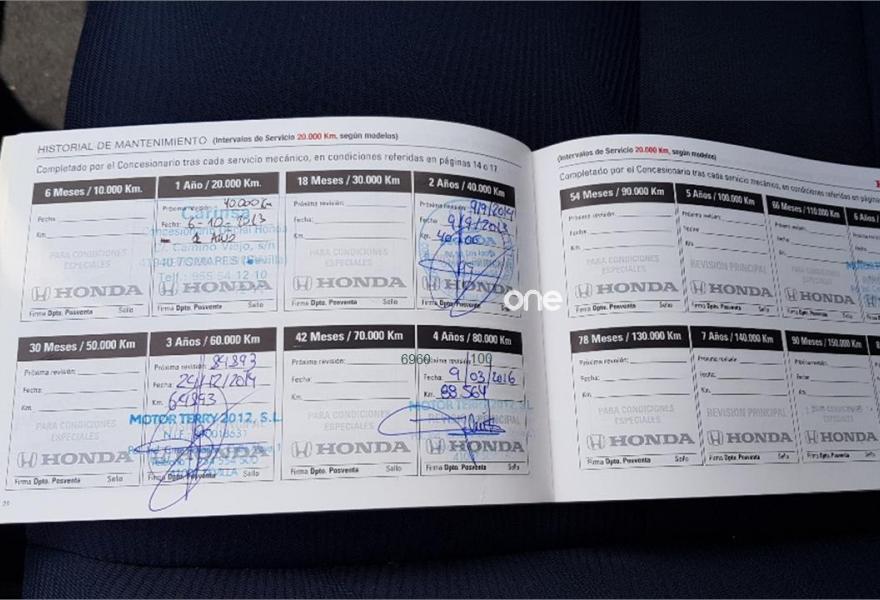 HISTORIAL DE MANTENIMIENTO (Intervalos de Servicio 20.000 Km, según modelos)
Completado por el Concesionario tras cada servicio mecánico, en condiciones referidas en páginas 14 o 17
6 Meses / 10.000 Km.
Próxima revisión:
Fecha:
Km.
PARA CONDICIONES
ESPECIALES
HONDA
Firma Dpto. Posventa Sello
1 Año / 20.000 Km.
Próxima revisión: 40000 Km
Carinsa
Fecha: 6-10-2013
Concesionario Oficial Honda
1 AÑO
Camino Viejo, s/n
41940 TOMARES (Sevilla)
Telf.: 955 54 12 10
HONDA
Firma Dpto. Posventa Sello
18 Meses / 30.000 Km
Próxima revisión:
Fecha:
Km.
PARA CONDICIONES
ESPECIALES
HONDA
Firma Dpto. Posventa Sello
2 Años / 40.000 Km
Próxima revisión: 9/9/2014
Fecha: 9/9/2013
Km.
HONDA
Firma Dpto. Posventa Sello
one
30 Meses / 50.000 Km
Próxima revisión:
Fecha:
Km.
PARA CONDICIONES
ESPECIALES
HONDA
Firma Dpto. Posventa Sello
3 Años / 60.000 Km
Próxima revisión: 89893
Fecha: 29/12/2014
Km. 69893
MOTOR TERRY 2012, S.L.
HONDA
Firma Dpto. Posventa Sello
42 Meses / 70.000 Km
Próxima revisión:
6960
Fecha:
Km.
PARA CONDICIONES
ESPECIALES
HONDA
Firma Dpto. Posventa Sello
4 Años / 80.000 Km
Próxima revisión: 100
Fecha: 9/03/2016
Km. 88.564
MOTOR TERRY 2012, S.L.
HONDA
Firma Dpto. Posventa Sello
(Intervalos de Servicio 20.000 Km, según modelos)
Completado por el Concesionario tras cada servicio mecánico, en condiciones referidas en páginas
54 Meses / 90.000 Km
Próxima revisión:
Fecha:
Km.
PARA CONDICIONES
ESPECIALES
HONDA
Firma Dpto. Posventa Sello
5 Años / 100.000 Km
Próxima revisión:
Fecha:
Km.
REVISIÓN PRINCIPAL
HONDA
Firma Dpto. Posventa Sello
66 Meses / 110.000 Km
Próxima revisión:
Fecha:
Km.
PARA CONDICIONES
ESPECIALES
HONDA
Firma Dpto. Posventa Sello
6 Años /
78 Meses / 130.000 Km
Próxima revisión:
Fecha:
Km.
PARA CONDICIONES
ESPECIALES
HONDA
Firma Dpto. Posventa Sello
7 Años / 140.000 Km
Próxima revisión:
Fecha:
Km.
REVISIÓN PRINCIPAL
HONDA
Firma Dpto. Posventa Sello
90 Meses / 150.000 Km
Próxima revisión:
Fecha:
Km.
PARA CONDICIONES
ESPECIALES
HONDA
Firma Dpto. Posventa Sello